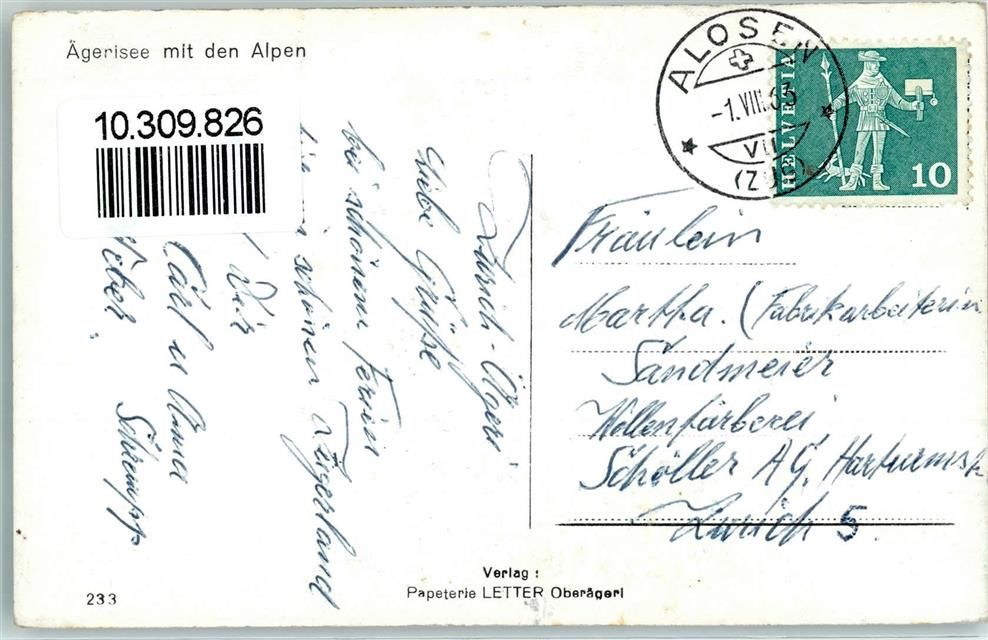 Ägerisee mit den Alpen
10.309.826
ALOSEN
-1.VIII.63
VII
(ZUG)
HELVETIA
10
Zürich-Ägeri
Liebe Grüsse
bei schönem Ferien
im schönen Zugerland
Dir
Carl u Anna
Schrumpf
Fräulein
Martha. (Fabrikarbeiterin
Sandmeier
Wollenfärberei
Schöller AG, Hardturmstr
Zürich 5.
Verlag:
Papeterie LETTER Oberägeri
233